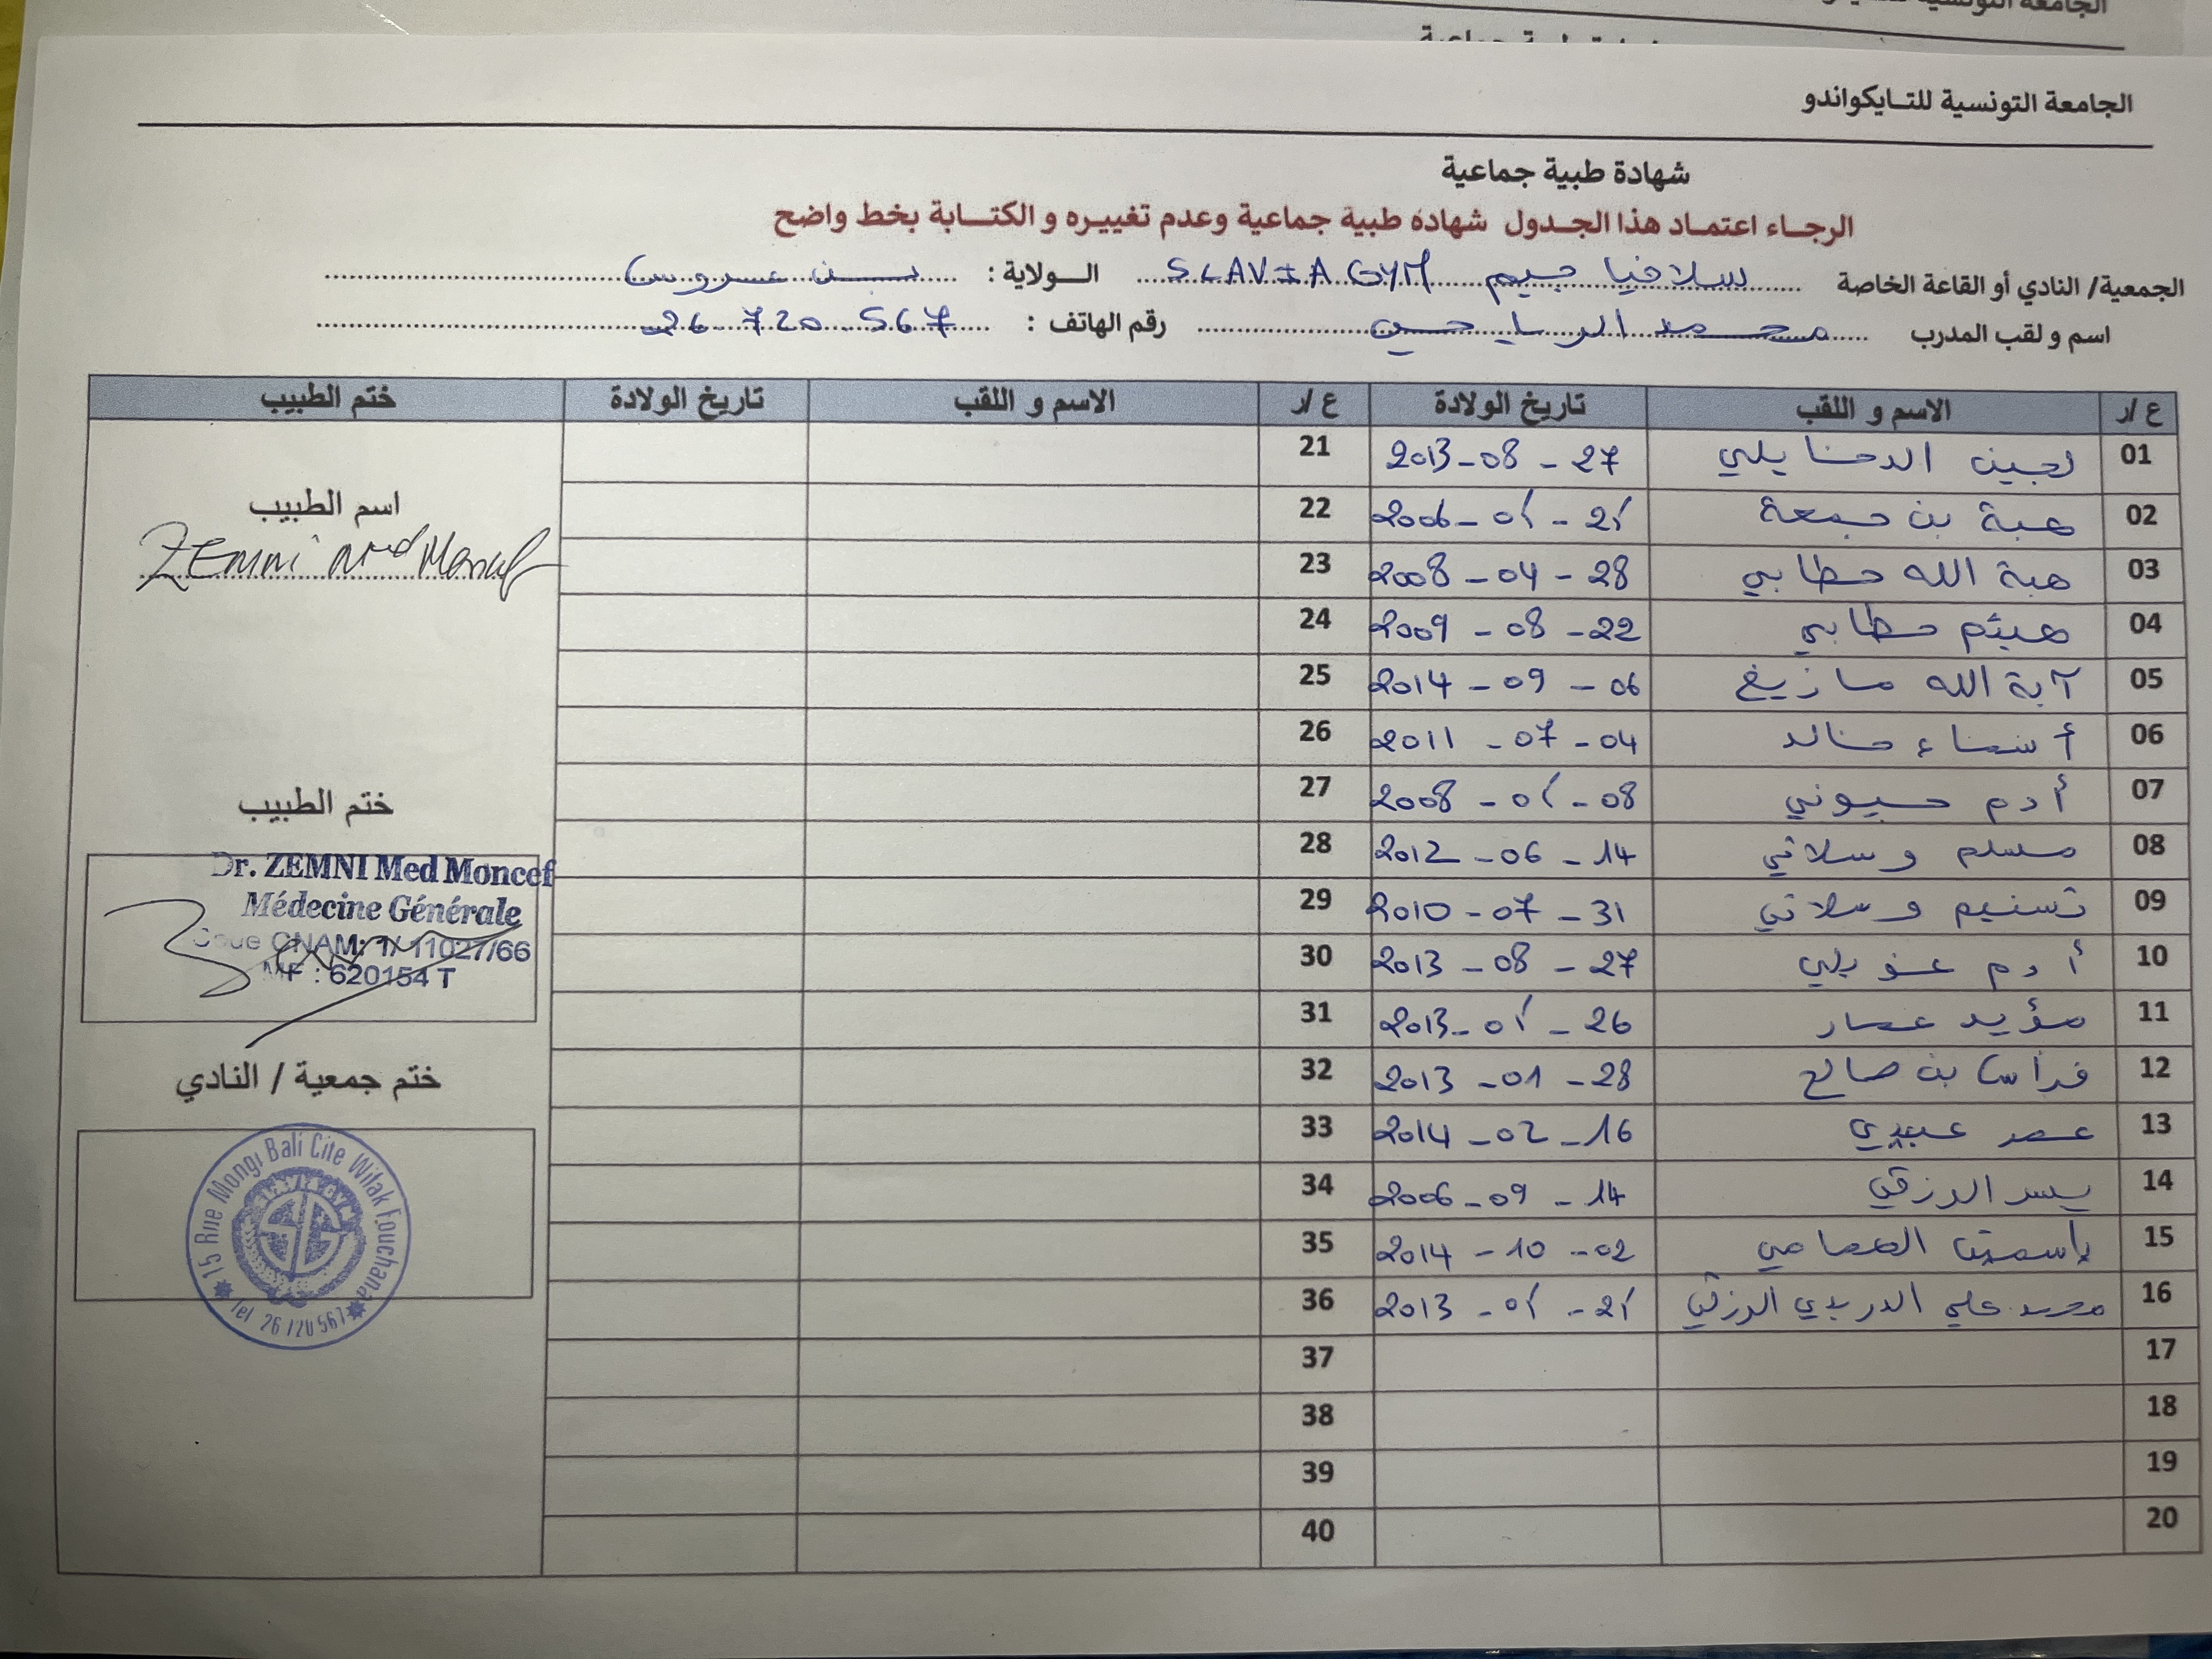 الجامعة التونسية للتايكواندو
شهادة طبية جماعية
الرجاء اعتماد هذا الجدول شهاده طبية جماعية وعدم تغييره و الكتابة بخط واضح
الجمعية/ النادي أو القاعة الخاصة سلافيا جيم SLAVIA GYM الولاية : بن عروس
اسم و لقب المدرب محمد الرياحي رقم الهاتف : 26 720 567
ع /ر الاسم و اللقب تاريخ الولادة ع /ر الاسم و اللقب تاريخ الولادة ختم الطبيب
01 لجين الدخايلي 2013-08-27 21
02 هبة بن جمعة 2006-01-21 22
03 هبة الله حطابي 2008-04-28 23
04 هيثم حطابي 2009-08-22 24
05 آية الله مازيغ 2014-09-06 25
06 خالد 2011-07-04 26
07 أدم 2008-01-08 27
08 مسلم وسلاتي 2012-06-14 28
09 تسنيم وسلاتي 2010-07-31 29
10 أدم 2013-08-27 30
11 مؤيد عمار 2013-01-26 31
12 فراس بن صالح 2013-01-28 32
13 عمر عبيدي 2014-02-16 33
14 يسر الرزقي 2006-09-14 34
15 ياسمين الهمامي 2014-10-02 35
16 محمد علي الدريدي الرزقي 2013-01-21 36
17 37
18 38
19 39
20 40
اسم الطبيب
ZEMNI Med Moncef
ختم الطبيب
Dr. ZEMNI Med Moncef
Médecine Générale
Code CNAM: 1/ 11027/66
MF : 620154 T
ختم جمعية / النادي
15 Rue Mongi Bali Cite Wifak Fouchana
Tel 26 720 567